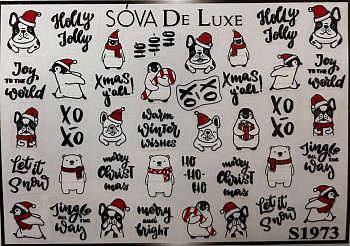 SŌVA DE LUXE
Holly
Jolly
HO
HO
HO
Holly
Jolly
Joy
TO THE
World
Xmas
y'all!
Xmas
y'all!
Joy
TO THE
World
XO
XO
XO
XO
warm
winter
wishes
XO
XO
Let it
Snow
merry
Christ
mas
HO
HO-
HO
merry
Christ
mas
Let it
Snow
Jingle
ALL THE
Way
merry
and
bright
Jingle
ALL THE
Way
S1973